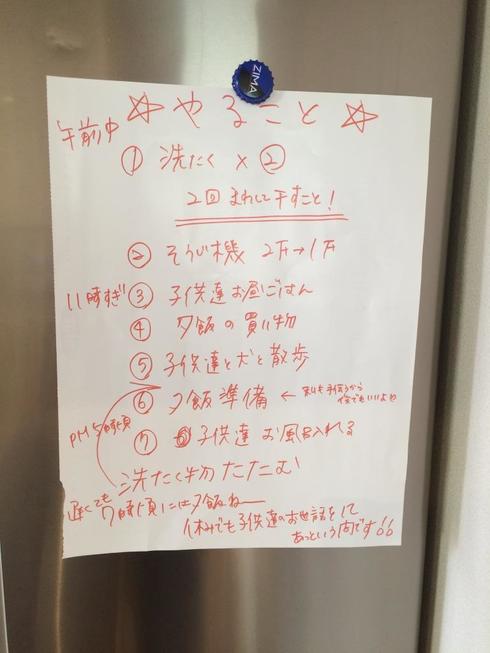 ZIMA
☆やること☆
午前中
① 洗たく × ②
2回まわして干すこと!
② そうじ機 2F→1F
11時すぎ ③ 子供達お昼ごはん
④ 夕飯の買い物
⑤ 子供達と犬と散歩
⑥ 夕飯準備 ← 私も手伝うから
何でもいいよね
PM5時頃 ⑦ 子供達 お風呂入れる
洗たく物たたむ
遅くても7時頃には夕飯ねー
休みでも子供達のお世話をして
あっという間です!!